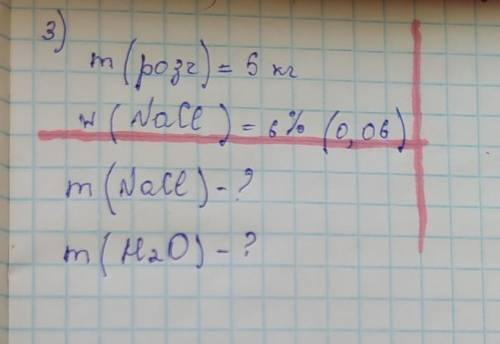 3)
m (розч) = 5 кг
w (NaCl) = 6% (0,06)
m (NaCl) - ?
m (H₂O) - ?